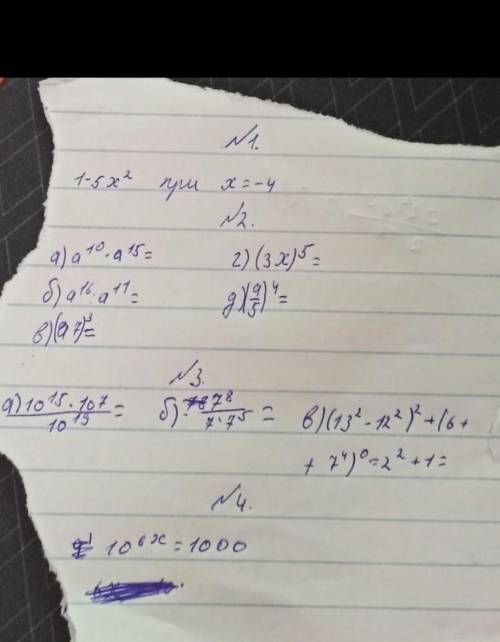 №1.
1-5x² при x=-4
№2.
а) a¹⁰·a¹⁵= г) (3x)⁵=
б) a¹⁶:a¹¹= д) (a/5)⁴=
в) (a7)³=
№3.
а) 10¹⁵·10⁷/10¹⁹= б) 7⁸/7·7⁵= в) (13²-12²)²+(6+
+7⁴)⁰=2²+1=
№4.
10⁶ˣ=1000